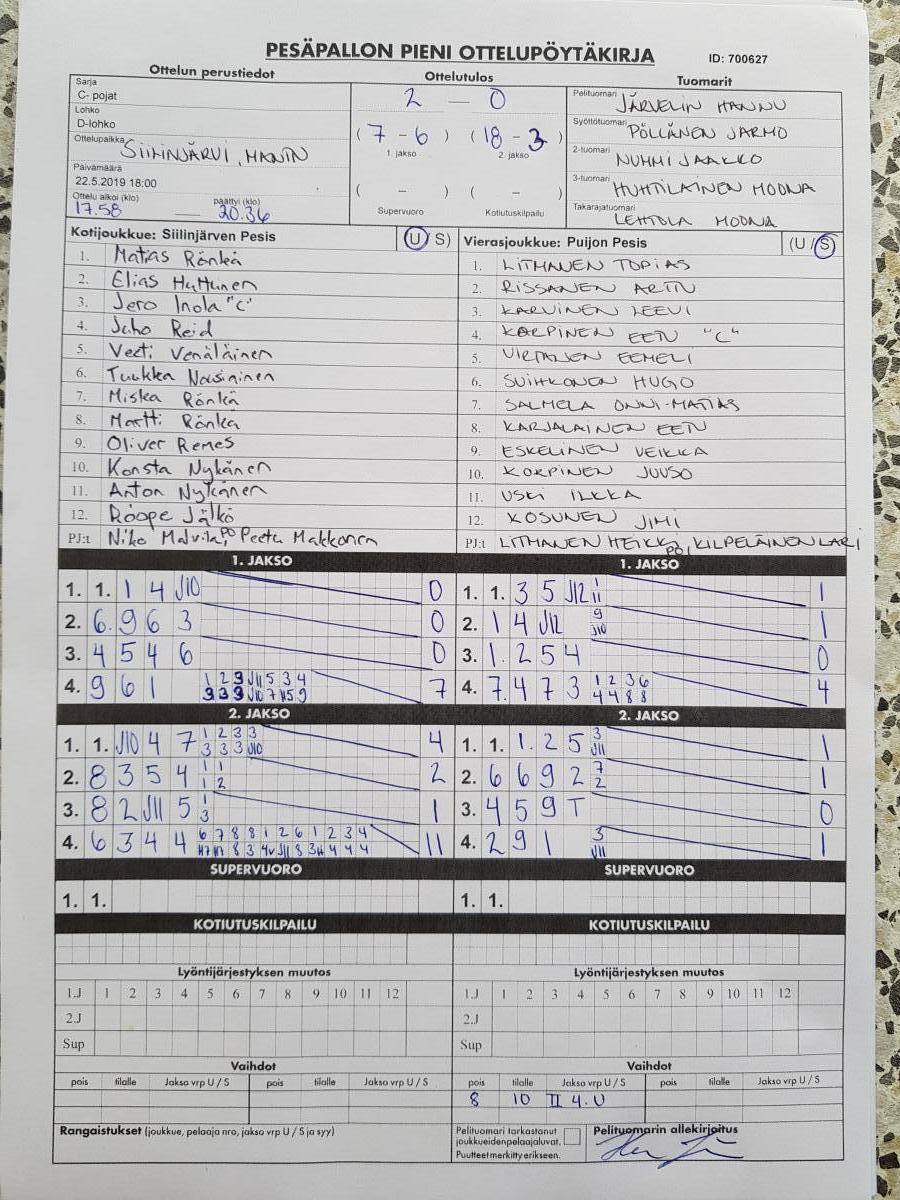 PESÄPALLON PIENI OTTELUPÖYTÄKIRJA
ID: 700627
Ottelun perustiedot
Ottelutulos
Tuomarit
Sarja
C- pojat
Lohko
D-lohko
Ottelupaikka SIILINJÄRVI, MANTN
Päivämäärä
22.5.2019 18:00
Ottelu alkoi (klo) päättyi (klo)
17.58 — 20.36
2 — 0
( 7 - 6 ) ( 18 - 3 )
1. jakso 2. jakso
( - ) ( - )
Supervuoro Kotiutuskilpailu
Pelituomari JÄRVELIN HANNU
Syöttötuomari PÖLLÄNEN JARMO
2-tuomari NUMMI JAAKKO
3-tuomari HUHTILAINEN MOONA
Takarajatuomari LEHTOLA MOONA
Kotijoukkue: Siilinjärven Pesis (U / S)
1. Matias Rönkä
2. Elias Huttunen
3. Jero Inola "C"
4. Juho Reid
5. Veeti Venäläinen
6. Tuukka Nousiainen
7. Miska Rönkä
8. Martti Rönkä
9. Oliver Remes
10. Konsta Nykänen
11. Anton Nykänen
12. Roope Jälkö
PJ:t Niko Malvila, PO Peetu Makkonen
Vierasjoukkue: Puijon Pesis (U / S)
1. LITMANEN TOPIAS
2. RISSANEN ARTTU
3. KARVINEN LEEVI
4. KARPINEN EETU "C"
5. VIRTANEN EEMELI
6. SUIHKONEN HUGO
7. SALMELA ONNI-MATIAS
8. KARJALAINEN EETU
9. ESKELINEN VEIKKA
10. KORPINEN JUUSO
11. USKI ILKKA
12. KOSUNEN JIMI
PJ:t LITMANEN HEIKKI, PO, KILPELÄINEN LARI
1. JAKSO
1. 1. 1 4 J10 0
2. 6. 9 6 3 0
3. 4 5 4 6 0
4. 9 6 1 1 2 9 J11 5 3 4 7
2. JAKSO
1. 1. J10 4 7 1 2 3 3 4
3 3 3 J10
2. 8 3 5 4 1 1 2
1 2
3. 8 2 J11 5 1 1
3
4. 6 3 4 4 6 7 8 8 1 2 6 1 2 3 4 11
SUPERVUORO
1. 1.
KOTIUTUSKILPAILU
Lyöntijärjestyksen muutos
1.J 1 2 3 4 5 6 7 8 9 10 11 12
2.J
Sup
Vaihdot
pois tilalle Jakso vrp U / S pois tilalle Jakso vrp U / S
Rangaistukset (joukkue, pelaaja nro, jakso vrp U / S ja syy)
1. JAKSO
1. 1. 3 5 J12 1 1
11
2. 1 4 J12 9 1
J10
3. 1. 2 5 4 0
4. 7. 4 7 3 1 2 3 6 4
4 4 8 8
2. JAKSO
1. 1. 1. 2 5 3 1
J11
2. 6 6 9 2 7 1
2
3. 4 5 9 T 0
4. 2 9 1 3 1
J11
SUPERVUORO
1. 1.
KOTIUTUSKILPAILU
Lyöntijärjestyksen muutos
1.J 1 2 3 4 5 6 7 8 9 10 11 12
2.J
Sup
Vaihdot
pois tilalle Jakso vrp U / S pois tilalle Jakso vrp U / S
8 10 II 4. U
Pelituomari tarkastanut
joukkueidenpelaajaluvat.
Puutteet merkitty erikseen.
Pelituomarin allekirjoitus